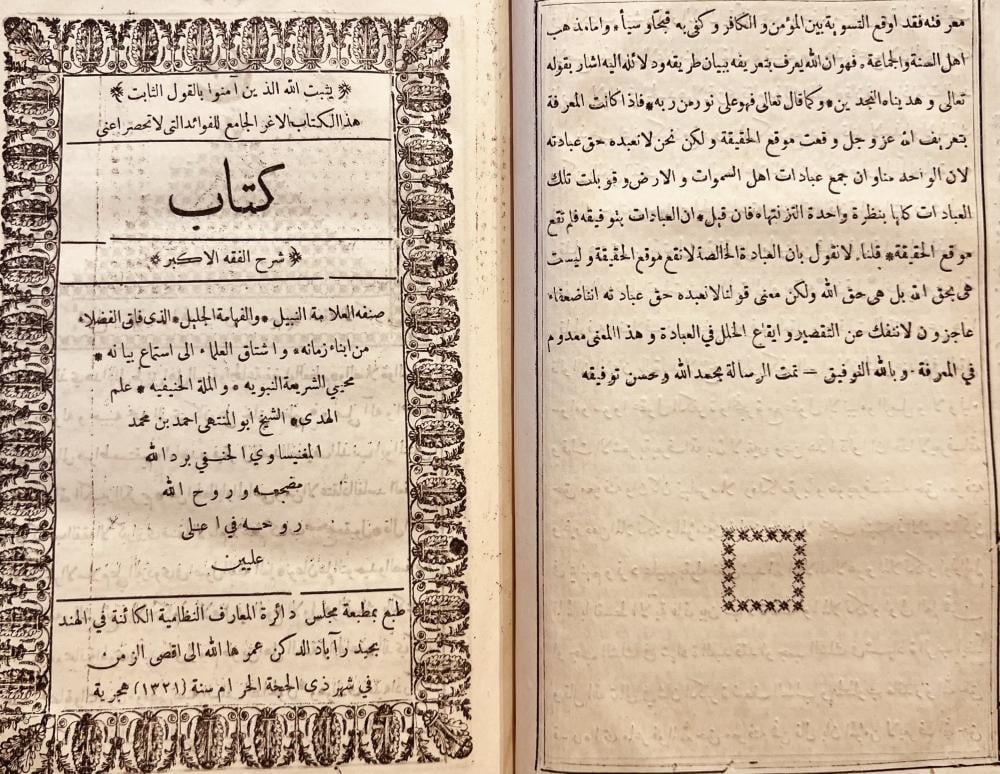 معرفته فقد اوقع التسوية بين المؤمن و الكافر و كفى به قبحا و سيأ * و اما مذهب
اهل السنة والجماعة * فهو ان الله يعرف بتعريفه ببيان طريقه و دلائله اليه اشار بقوله
تعالى و هديناه النجدين * و كما قال تعالى فهو على نور من ربه * فاذا كانت المعرفة
بتعريف الله عز و جل وقعت موقع الحقيقة و لكن نحن لا نعبده حق عبادته
لان الواحد منا و ان جمع عبادات اهل السموات و الارض و قوبلت تلك
العبادات كلها بنظرة واحدة فان قيل * ان العبادات بتوفيقه فلم تقع
موقع الحقيقة * قلنا لا نقول بان العبادة الخالصة لا تقع موقع الحقيقة و ليست
هى بحق الله بل هى حق الله ولكن معنى قولنا لا نعبده حق عبادته اننا ضعفاء
عاجزون لا ننفك عن التقصير و ايقاع الخلل في العبادة و هذا المعنى معدوم
في المعرفة * و بالله التوفيق — تمت الرسالة بحمد الله و حسن توفيقه
* يثبت الله الذين آمنوا بالقول الثابت *
هذا الكتاب الاغر الجامع للفوائد التى لا تحصر اعنى
كتاب
* شرح الفقه الاكبر *
صنفه العلامة النبيل * والفهامة الجليل * الذى فاق الفضلاء
من ابناء زمانه * و اشتاق العلماء الى استماع بيانه *
محيي الشريعة النبويه * و الملة الحنيفيه * علم
الهدى * الشيخ ابو المنتهى احمد بن محمد
المغنيساوي الحنفي برد الله
مضجعه و روح الله
روحه في اعلى
عليين
طبع بمطبعة مجلس دائرة المعارف النظامية الكائنة في الهند
بحيدرآباد الدكن عمرها الله الى اقصى الزمن
في شهر ذى الحجة الحرام سنة (١٣٢١) هجرية